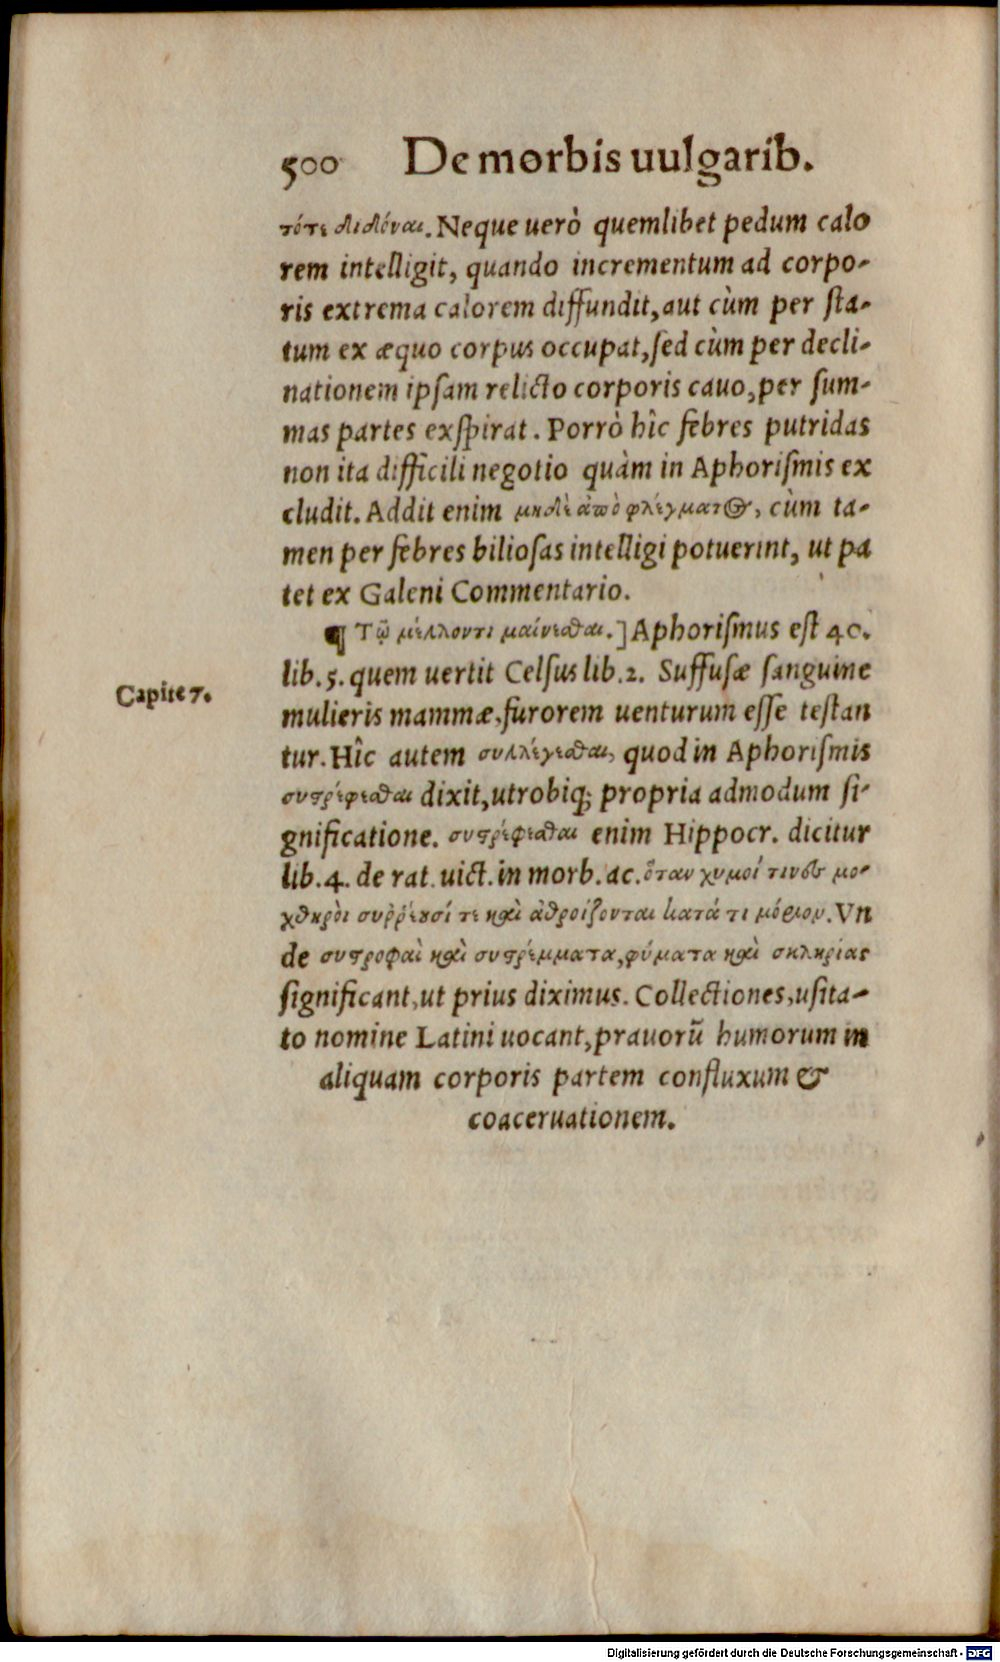 500 De morbis uulgarib.
τότε διδόναι. Neque uerò quemlibet pedum calo
rem intelligit, quando incrementum ad corpo-
ris extrema calorem diffundit, aut cùm per sta-
tum ex æquo corpus occupat, sed cùm per decli-
nationem ipsam relicto corporis cauo, per sum-
mas partes exspirat. Porrò hîc febres putridas
non ita difficili negotio quàm in Aphorismis ex
cludit. Addit enim μηδὲ ἀπὸ φλέγματος, cùm ta-
men per febres biliosas intelligi potuerint, ut pa
tet ex Galeni Commentario.
¶ Τῷ μέλλοντι μαίνεσθαι.] Aphorismus est 40.
lib. 5. quem uertit Celsus lib. 2. Suffusæ sanguine
Capite 7.
mulieris mammæ, furorem uenturum esse testan
tur. Hîc autem συλλέγεσθαι, quod in Aphorismis
συστρέφεσθαι dixit, utrobiq; propria admodum si-
gnificatione. συστρέφεσθαι enim Hippocr. dicitur
lib. 4. de rat. uict. in morb. ac. ὅταν χυμοί τινες μο-
χθηροὶ συῤῥέωσί τε καὶ ἀθροίζονται κατά τι μόριον. Vn
de συστροφαὶ καὶ συστρέμματα, φύματα καὶ σκληρίας
significant, ut prius diximus. Collectiones, usita-
to nomine Latini uocant, prauorũ humorum in
aliquam corporis partem confluxum &
coaceruationem.
Digitalisierung gefördert durch die Deutsche Forschungsgemeinschaft - DFG